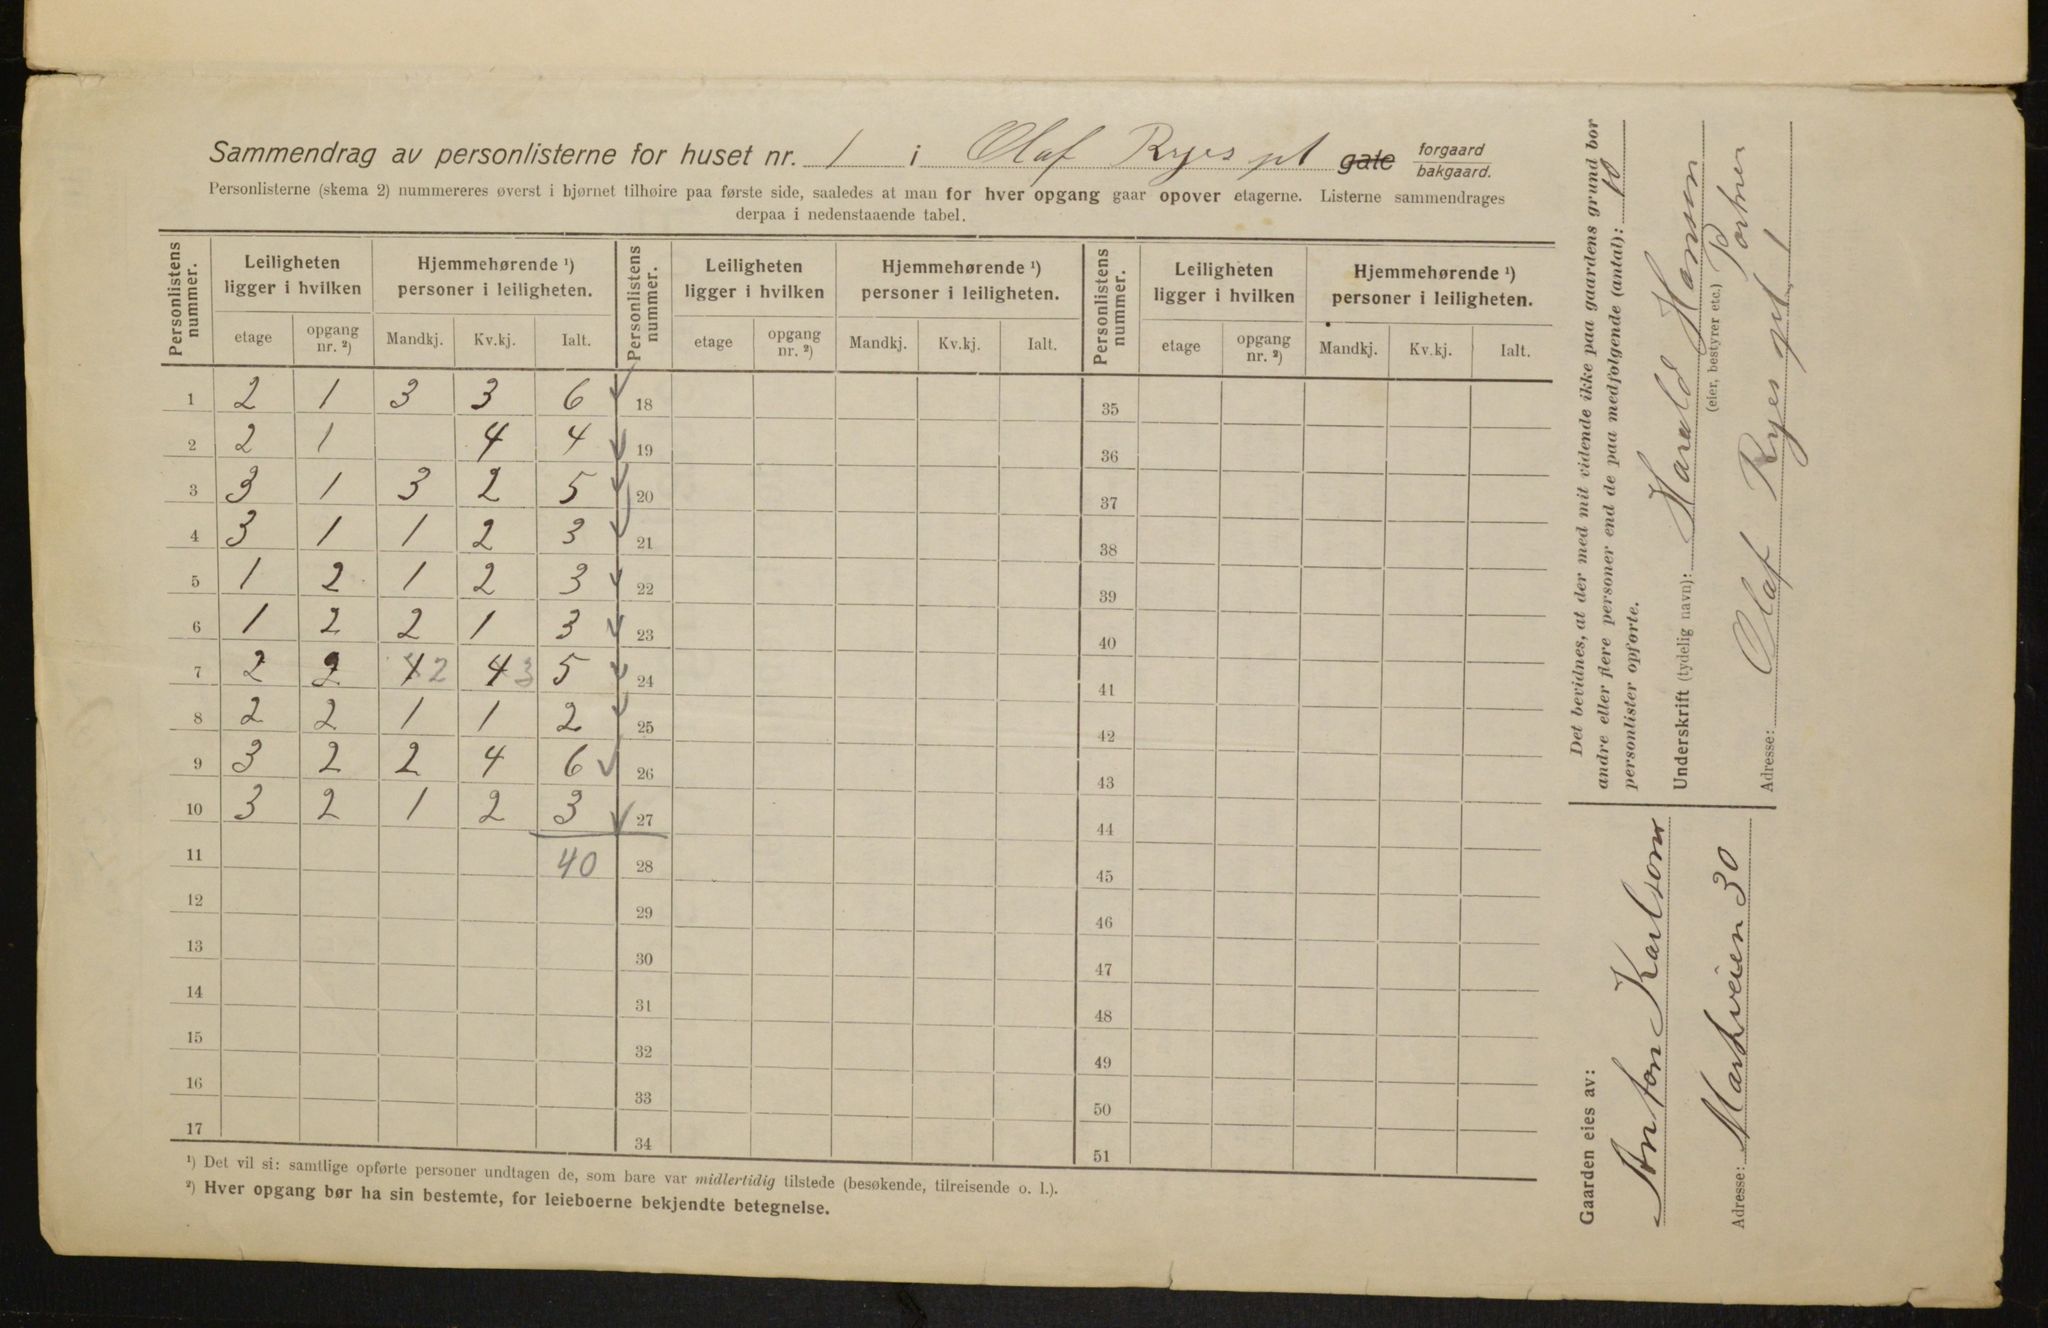 Sammendrag av personlisterne for huset nr. 1 i Olaf Ryes pl gate forgaard / bakgaard.
Personlisterne (skema 2) nummereres øverst i hjørnet tilhøire paa første side, saaledes at man for hver opgang gaar opover etagerne. Listerne sammendrages
derpaa i nedenstaaende tabel.
Personlistens nummer. Leiligheten ligger i hvilken Hjemmehørende ¹) personer i leiligheten. Personlistens nummer. Leiligheten ligger i hvilken Hjemmehørende ¹) personer i leiligheten. Personlistens nummer. Leiligheten ligger i hvilken Hjemmehørende ¹) personer i leiligheten.
etage opgang nr. ²) Mandkj. Kv.kj. Ialt. etage opgang nr. ²) Mandkj. Kv.kj. Ialt. etage opgang nr. ²) Mandkj. Kv.kj. Ialt.
1 2 1 3 3 6 18 35
2 2 1 4 4 19 36
3 3 1 3 2 5 20 37
4 3 1 1 2 3 21 38
5 1 2 1 2 3 22 39
6 1 2 2 1 3 23 40
7 2 2 1 2 4 3 5 24 41
8 2 2 1 1 2 25 42
9 3 2 2 4 6 26 43
10 3 2 1 2 3 27 44
11 40 28 45
12 29 46
13 30 47
14 31 48
15 32 49
16 33 50
17 34 51
¹) Det vil si: samtlige opførte personer undtagen de, som bare var midlertidig tilstede (besøkende, tilreisende o. l.).
²) Hver opgang bør ha sin bestemte, for leieboerne bekjendte betegnelse.
Det bevidnes, at der med mit vidende ikke paa gaardens grund bor
andre eller flere personer end de paa medfølgende (antal): 10
personlister opførte.
Underskrift (tydelig navn): Harald Hansen
(eier, bestyrer etc.) Portner
Adresse: Olaf Ryes pl. 1
Gaarden eies av:
Anton Karlson
Adresse: Markveien 30